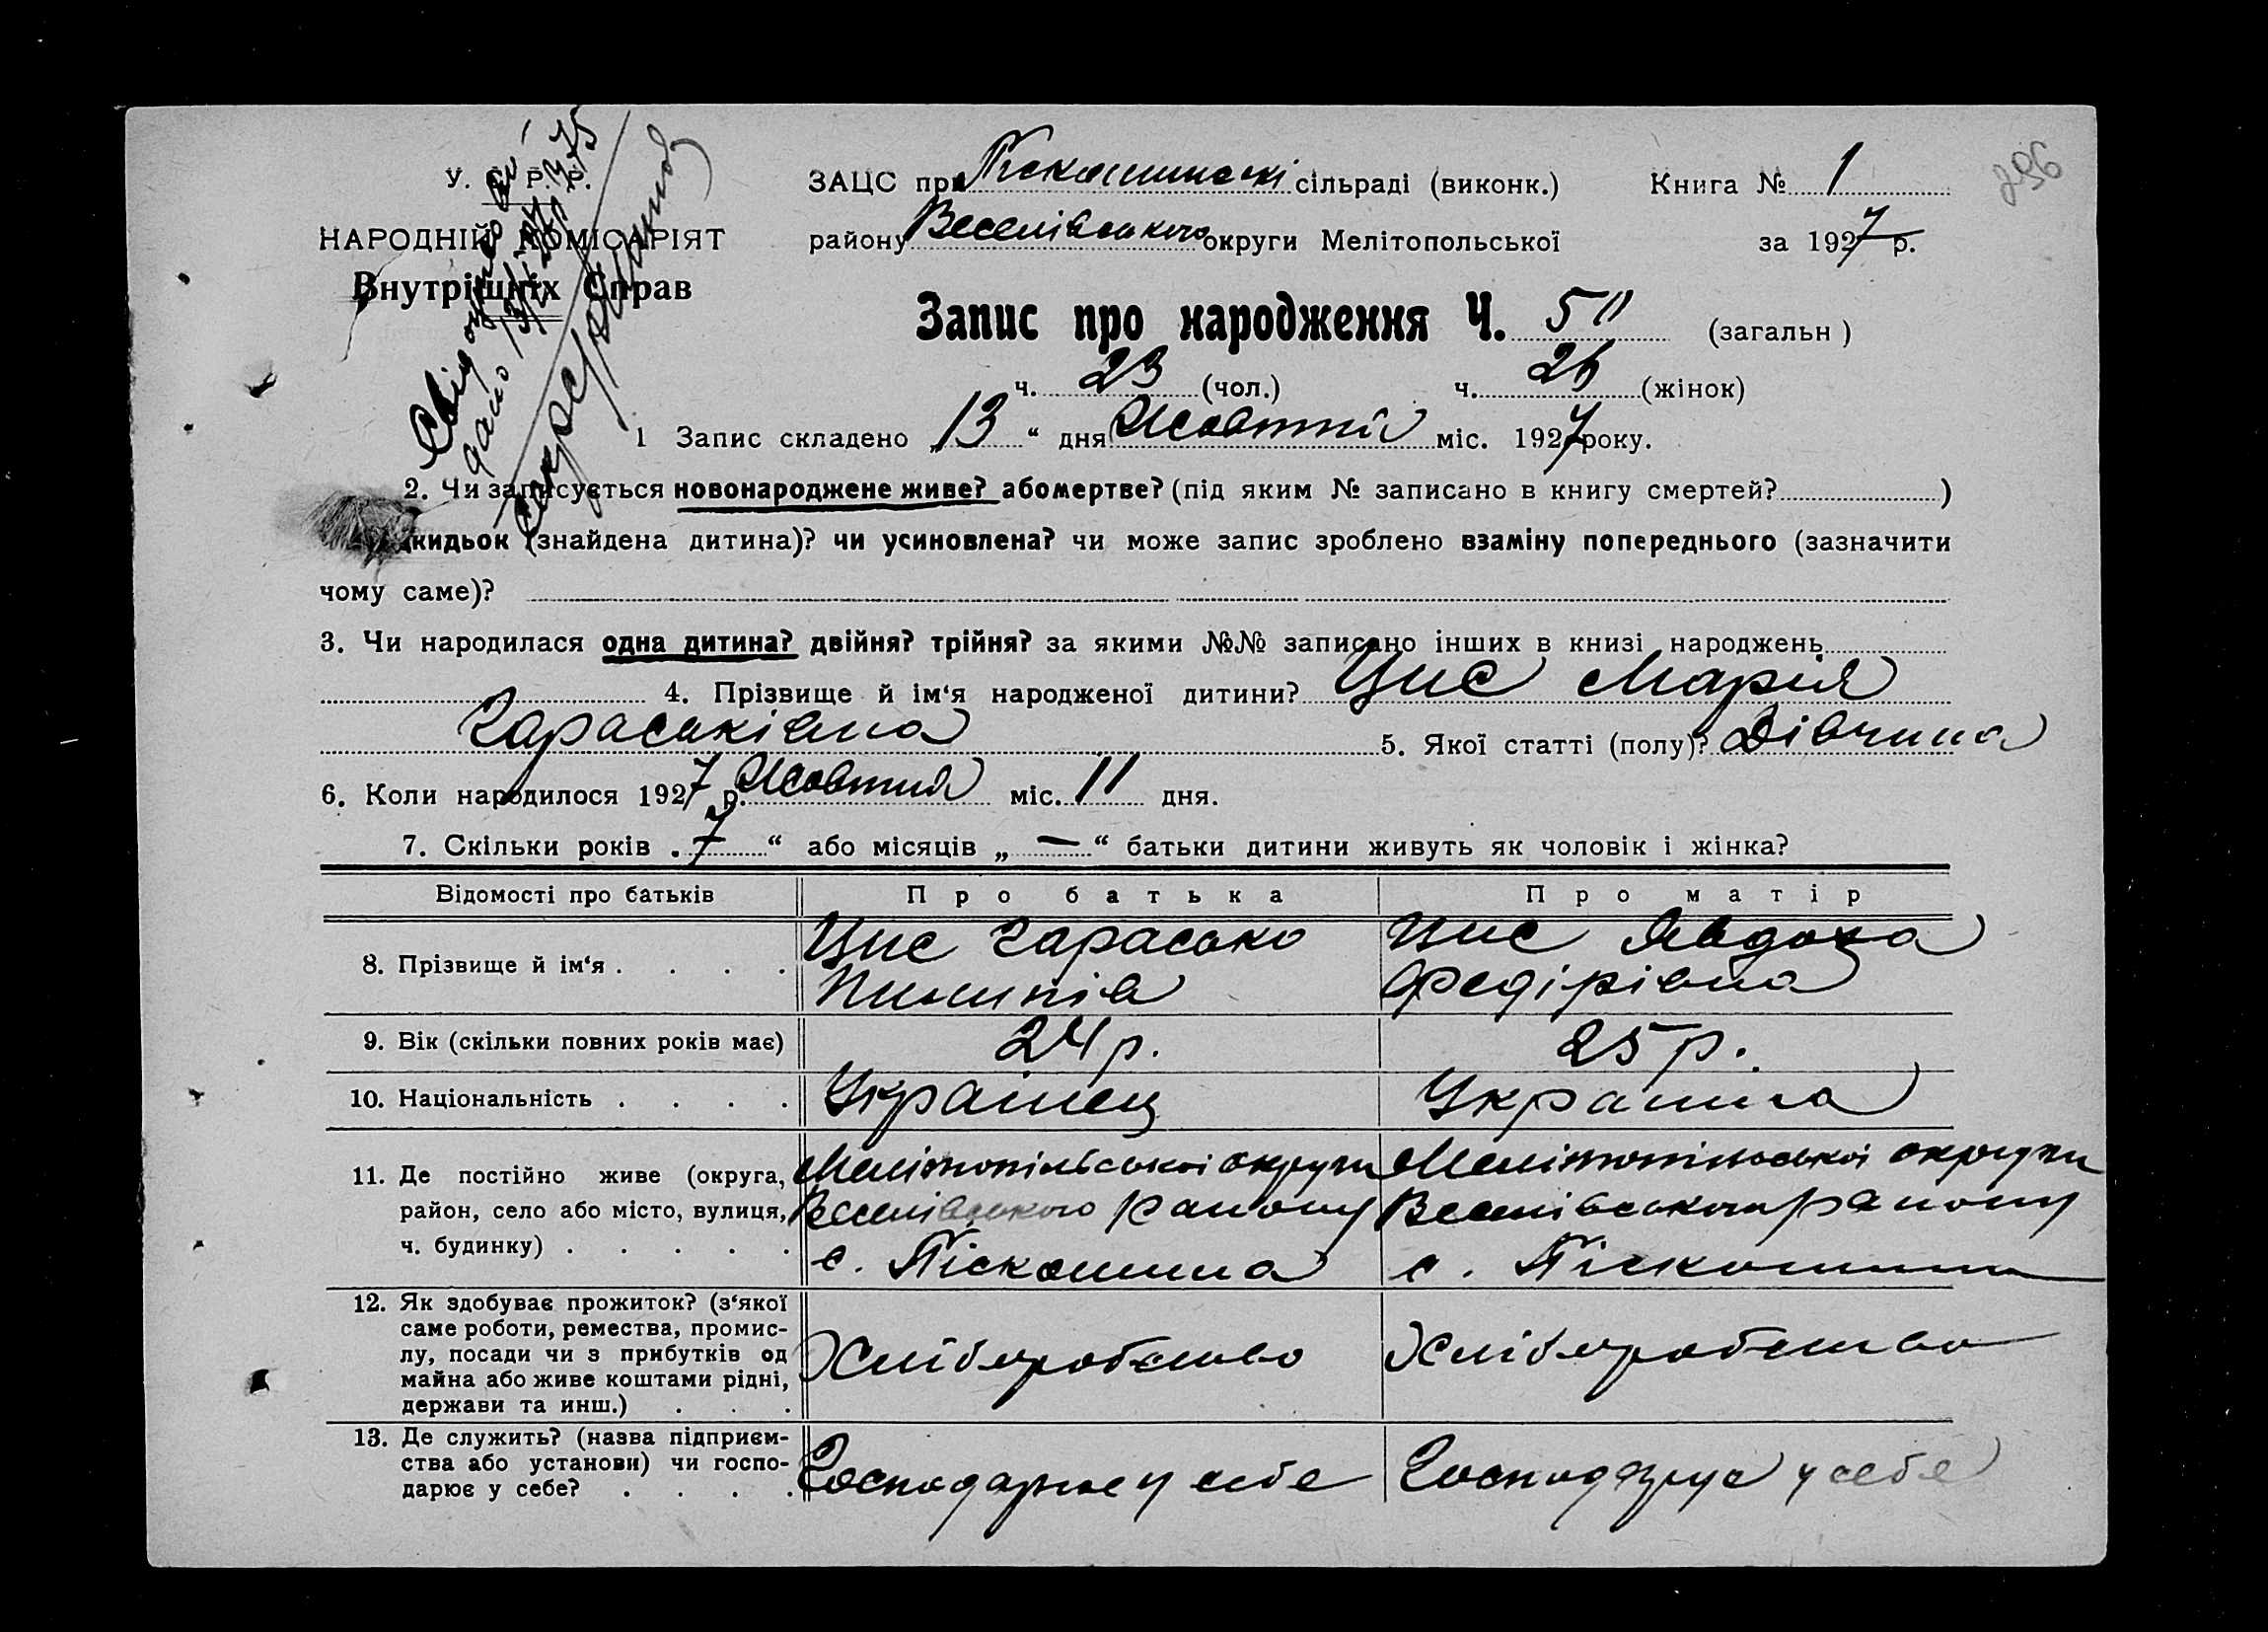 У. С. Р. Р.
НАРОДНІЙ КОМІСАРІЯТ
Внутрішніх Справ
ЗАЦС при Піскошинській сільраді (виконк.) Книга № 1
району Веселівського округи Мелітопольської за 1927 р.
296
Запис про народження Ч. 50 (загальн)
ч. 23 (чол.) ч. 26 (жінок)
1 Запис складено „13“ дня Жовтня міс. 1927 року.
2. Чи записується новонароджене живе? або мертве? (під яким № записано в книгу смертей? )
підкидьок (знайдена дитина)? чи усиновлена? чи може запис зроблено взаміну попереднього (зазначити
чому саме)?
3. Чи народилася одна дитина? двійня? трійня? за якими №№ записано інших в книзі народжень
4. Прізвище й ім‘я народженої дитини? Цис Марія
Гараськівна 5. Якої статті (полу)? Дівчина
6. Коли народилося 1927 р. Жовтня міс. 11 дня.
7. Скільки років „7“ або місяців „—“ батьки дитини живуть як чоловік і жінка?
Відомості про батьків Про батька Про матір
8. Прізвище й ім‘я . . . . Цис Гарасько Цис Явдоха
Пилипів Федірівна
9. Вік (скільки повних років має) 24 р. 25 р.
10. Національність . . . . Українец Українка
11. Де постійно живе (округа, Мелітопільської округи Мелітопільської округи
район, село або місто, вулиця, Веселівського району Веселівського району
ч. будинку) . . . . . с. Піскошина с. Піскошина
12. Як здобуває прожиток? (з‘якої
саме роботи, ремества, промис-
лу, посади чи з прибутків од Хліборобство Хліборобство
майна або живе коштами рідні,
держави та инш.) . . .
13. Де служить? (назва підприєм-
ства або установи) чи госпо- Господарює у себе Господарує у себе
дарює у себе? . . . .